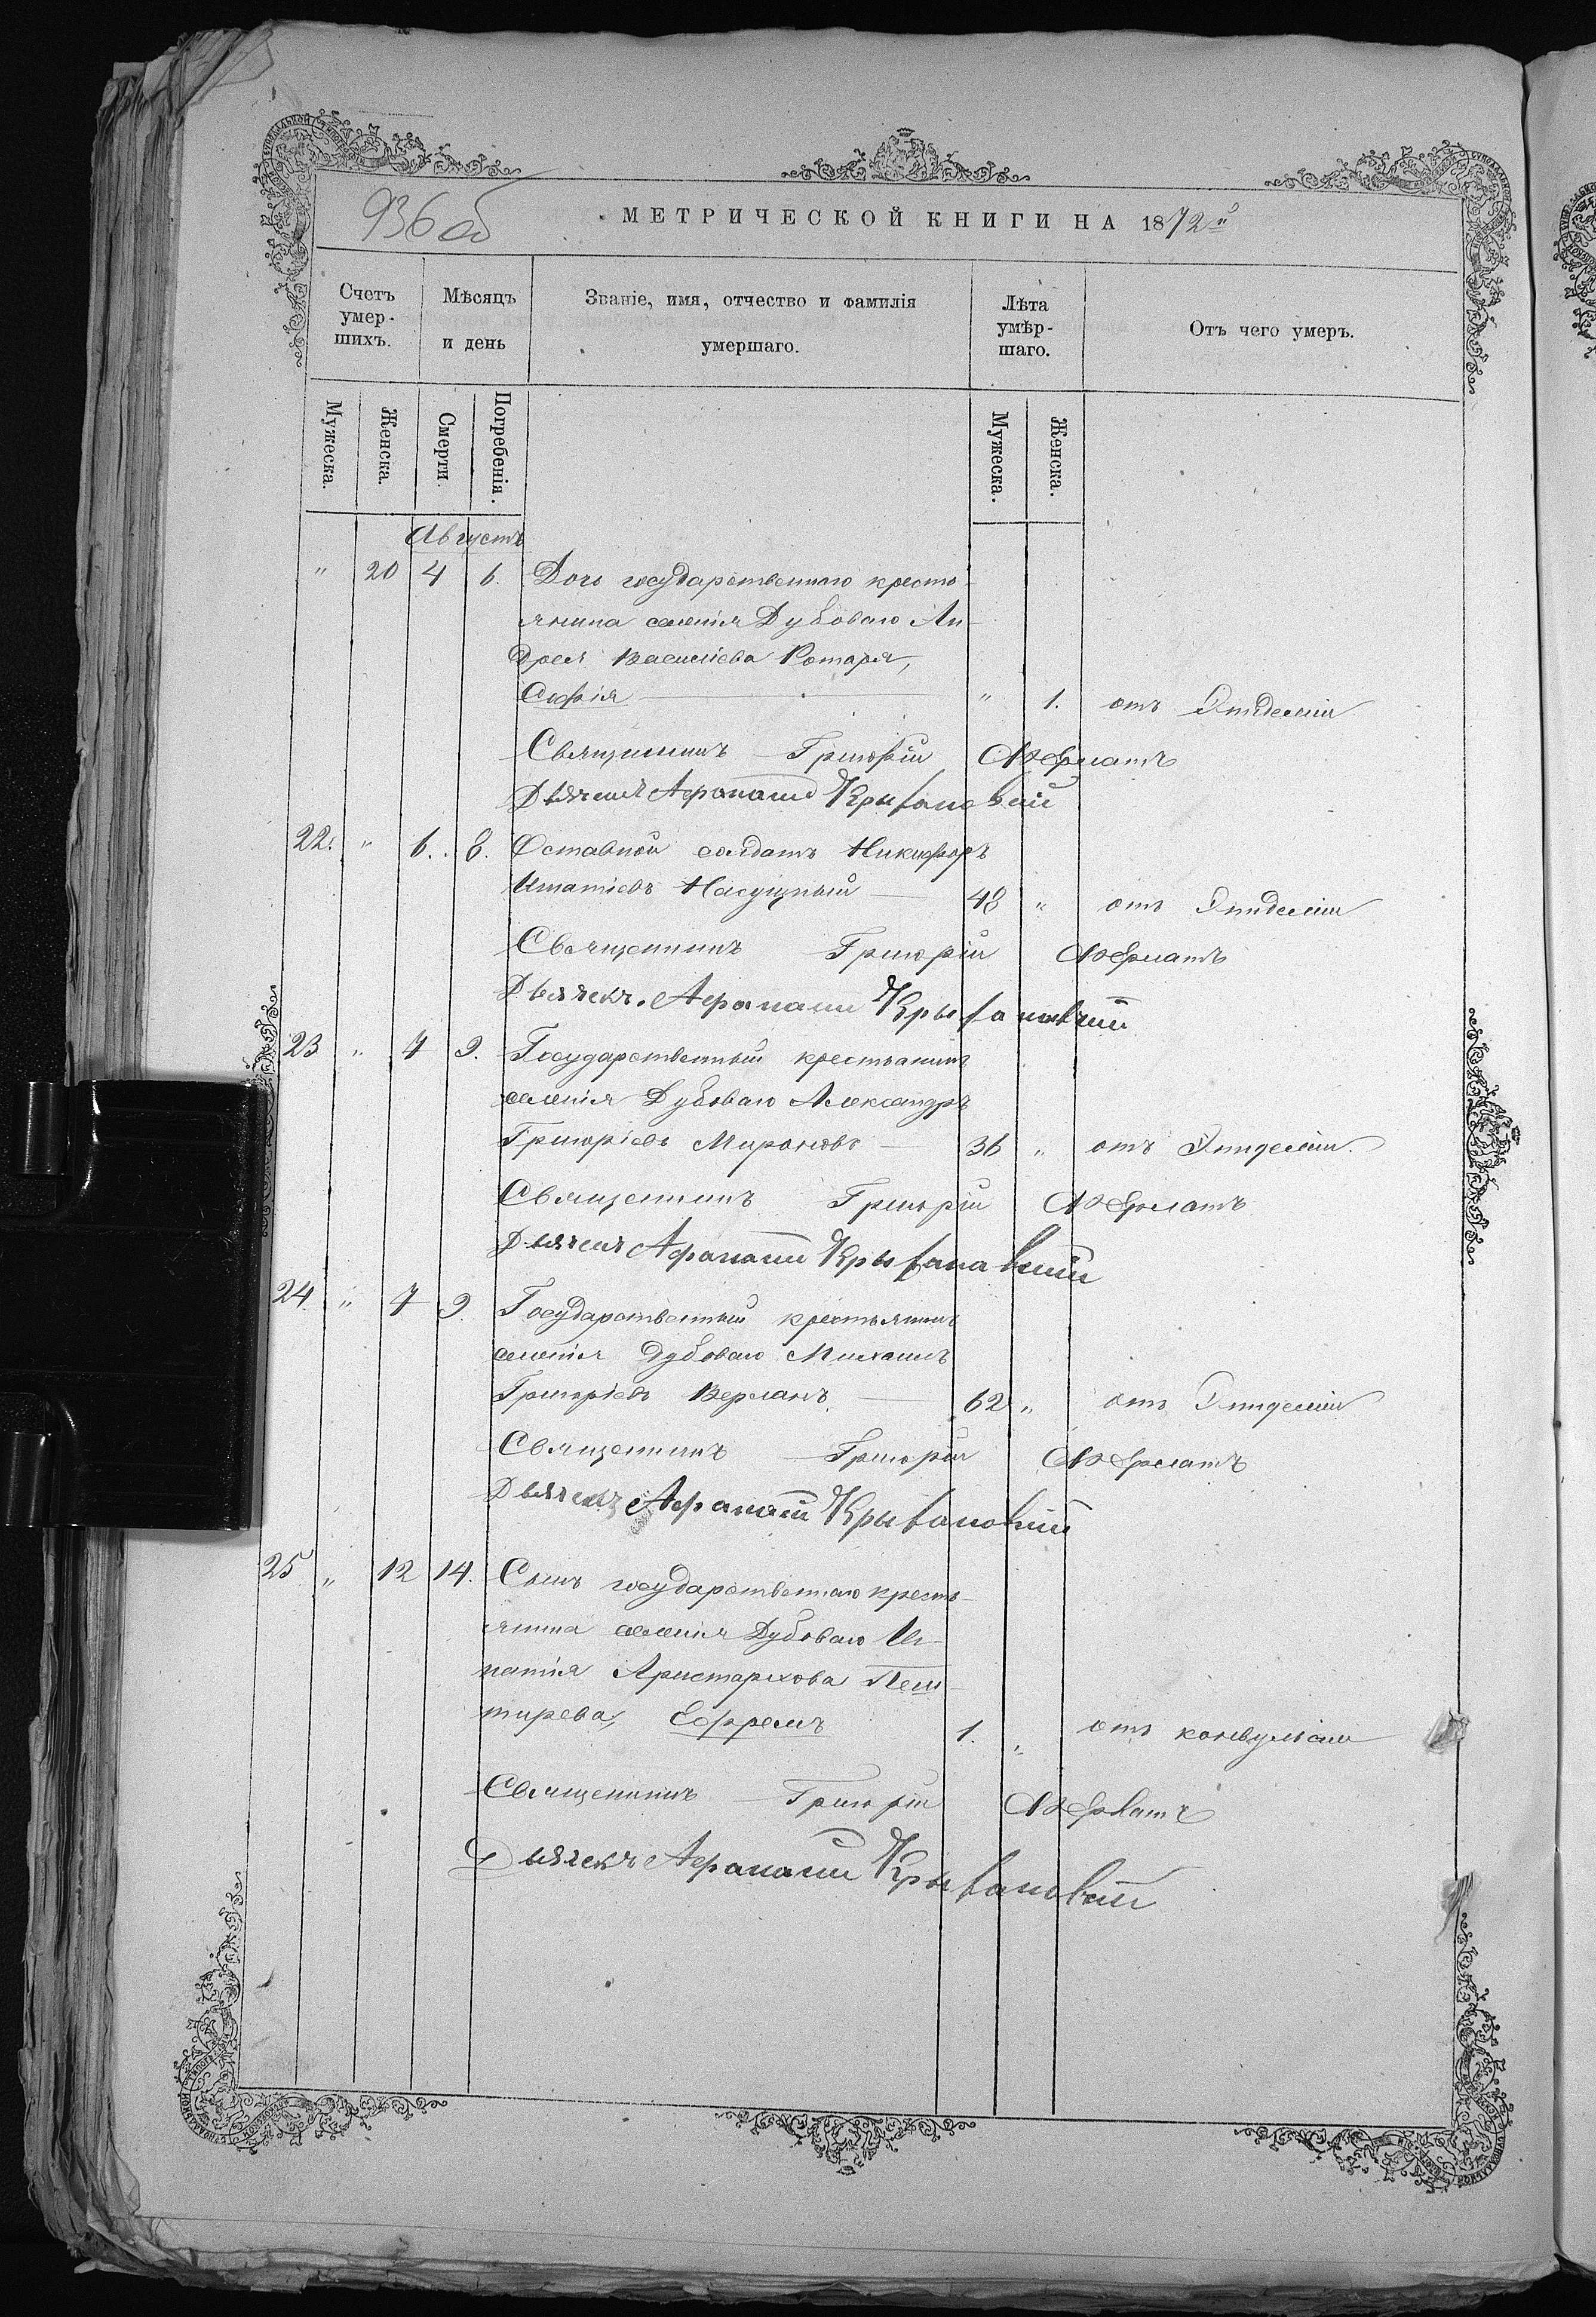 936 об
МЕТРИЧЕСКОЙ КНИГИ НА 1872й
Счетъ умер-шихъ.
Мѣсяцъ и день
Званіе, имя, отчество и фамилія умершаго.
Лѣта умѣр-шаго.
Отъ чего умеръ.
Мужеска.
Женска.
Смерти.
Погребенія.
Мужеска.
Женска.
Августъ
" 20 4 6. Дочь государственнаго кресть-
янина селенія Дубоваго Ан-
дрея Василіева Ротаря,
Софія " 1. отъ Эпидеміи
Священникъ Григорій
Дьячекъ Афанасій Крыжановскій
22. " 6. 8. Отставной солдатъ Никифоръ
Игнатіевъ Насущный 48 " отъ Эпидеміи
Священникъ Григорій
Дьячекъ Афанасій Крыжановскій
23 " 7 9. Государственный крестьянинъ
селенія Дубоваго Александръ
Григоріевъ Мироновъ 36 " отъ Эпидеміи.
Священникъ Григорій
Дьячекъ Афанасій Крыжановскій
24. " 7 9. Государственный крестьянинъ
селенія Дубоваго Михаилъ
Григоріевъ Верланъ 62 " отъ Эпидеміи
Священникъ Григорій
Дьячекъ Афанасій Крыжановскій
25 " 12 14. Сынъ государственнаго кресть-
янина селенія Дубоваго Иг-
натія Аристархова Пош-
тирева, Ефремъ 1. " отъ конвульсіи
Священникъ Григорій
Дьячекъ Афанасій Крыжановскій